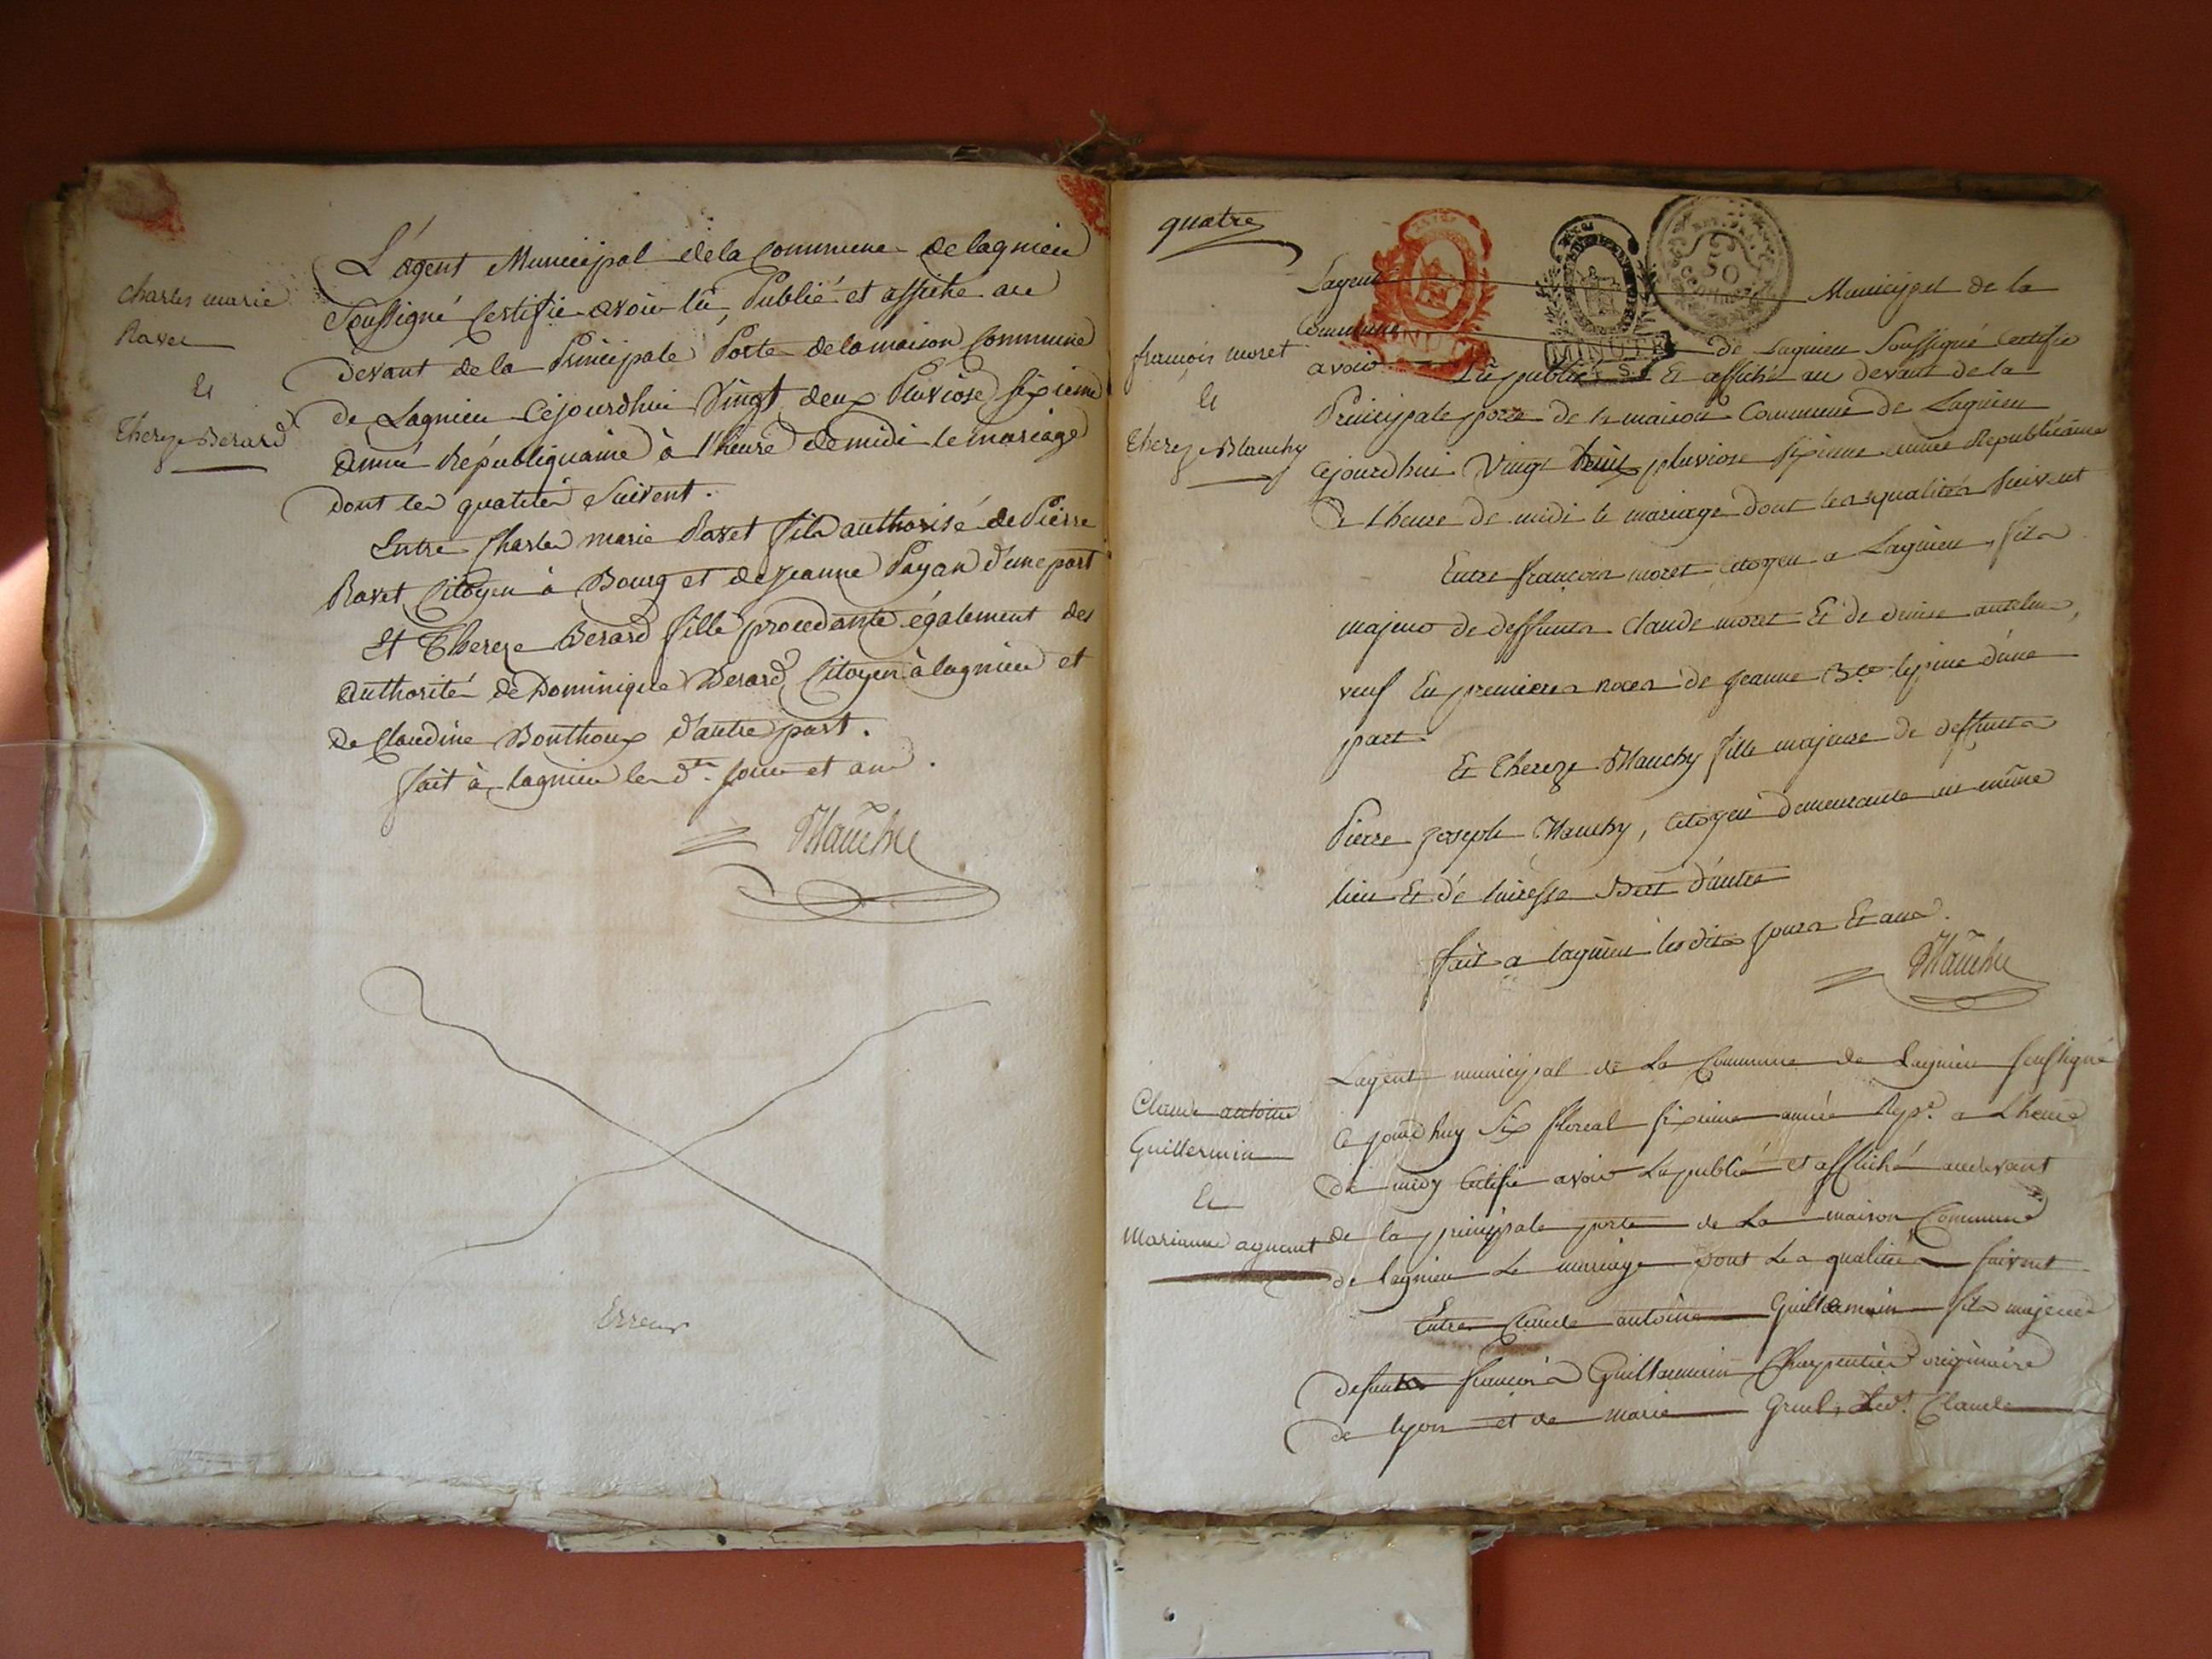 charles marie
Ravet
Et
Thereze Berard
L'agent Municipal de la Commune de lagnieu
Soussigné Certifie avoir lû, Publié et affiche au
devant de la Principale Porte de la maison Commune
de Lagnieu Cejourdhui Vingt deux Pluviose sixieme
année Républiquaine à l'heure de midi le mariage
dont les qualités Suivent.
Entre Charles marie Ravet fils authorisé de Pierre
Ravet Citoyen à Bourg et de jeanne Payan d'une part
Et Thereze Berard fille procedante également des
authorités de Dominique Berard Citoyen à lagnieu et
de Claudine Bonthoux d'autre part.
fait à lagnieu les dts jour et an.
Erreur
quatre
MINUTE
MINUTE
50
françois moret
Et
Thereze Blanchy
Lagent Municipal de la
Commune de Lagnieu Soussigné Certifie
avoir Lû publié Et affiché au devant de la
Principale porte de la maison Commune de Lagnieu
Cejourdhui Vingt huit pluviose Sixieme année Republicaine
a l'heure de midi le mariage dont les qualités Suivent
Entre françois moret citoyen a Lagnieu, fils
majeur de deffunts claude moret Et de denise antelme,
veuf En premieres noces de jeanne Bte lepine d'une
part
Et Thereze Blanchy fille majeure de deffunts
Pierre joseph Blanchy, citoyen demeurante au même
lieu Et de d'autre
fait a lagnieu les dits jours Et an.
Claude antoine
Guillermin
Et
Marianne
Lagent municipal de La Commune de Lagnieu soussigné
ce jourdhuy Six floreal sixieme année Repe. a Lheure
de midy Certifie avoir Lu publié et affiché audevant
de la principale porte de La maison Commune
de lagnieu Le mariage dont Les qualités suivent
Entre Claude antoine Guillermin fils majeur
defunts francois Guillermin Charpentier originaire
de lyon et de marie Claude